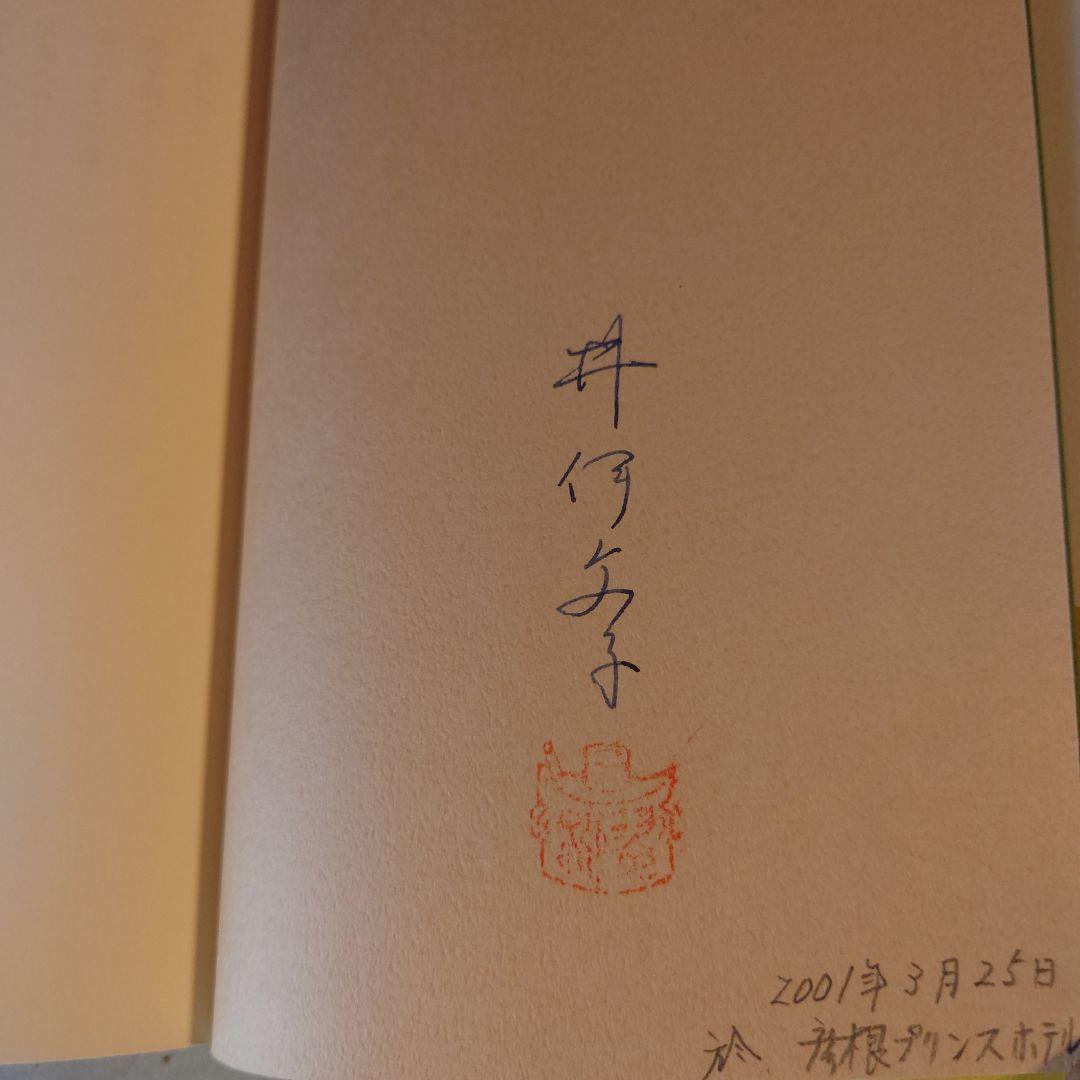 井伊文子
2001年3月25日
於 彦根プリンスホテル